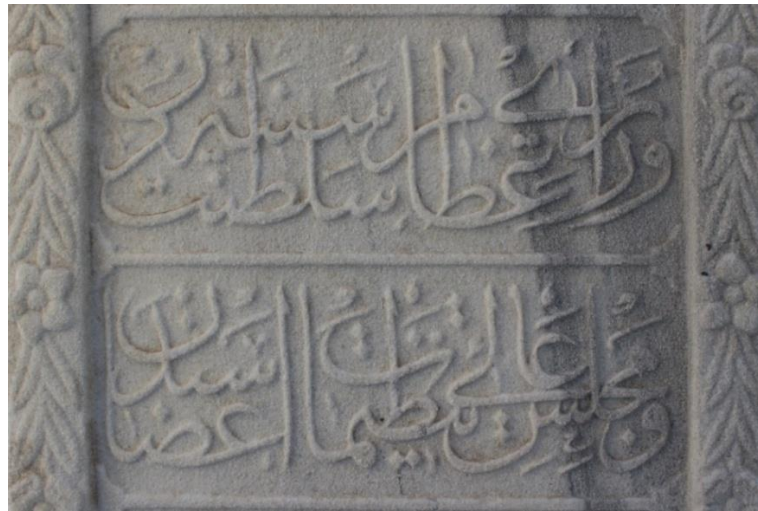 وزرای عظام سلطنت سنیه دن
و مجلس عالی تنظیمات اعضاسندن